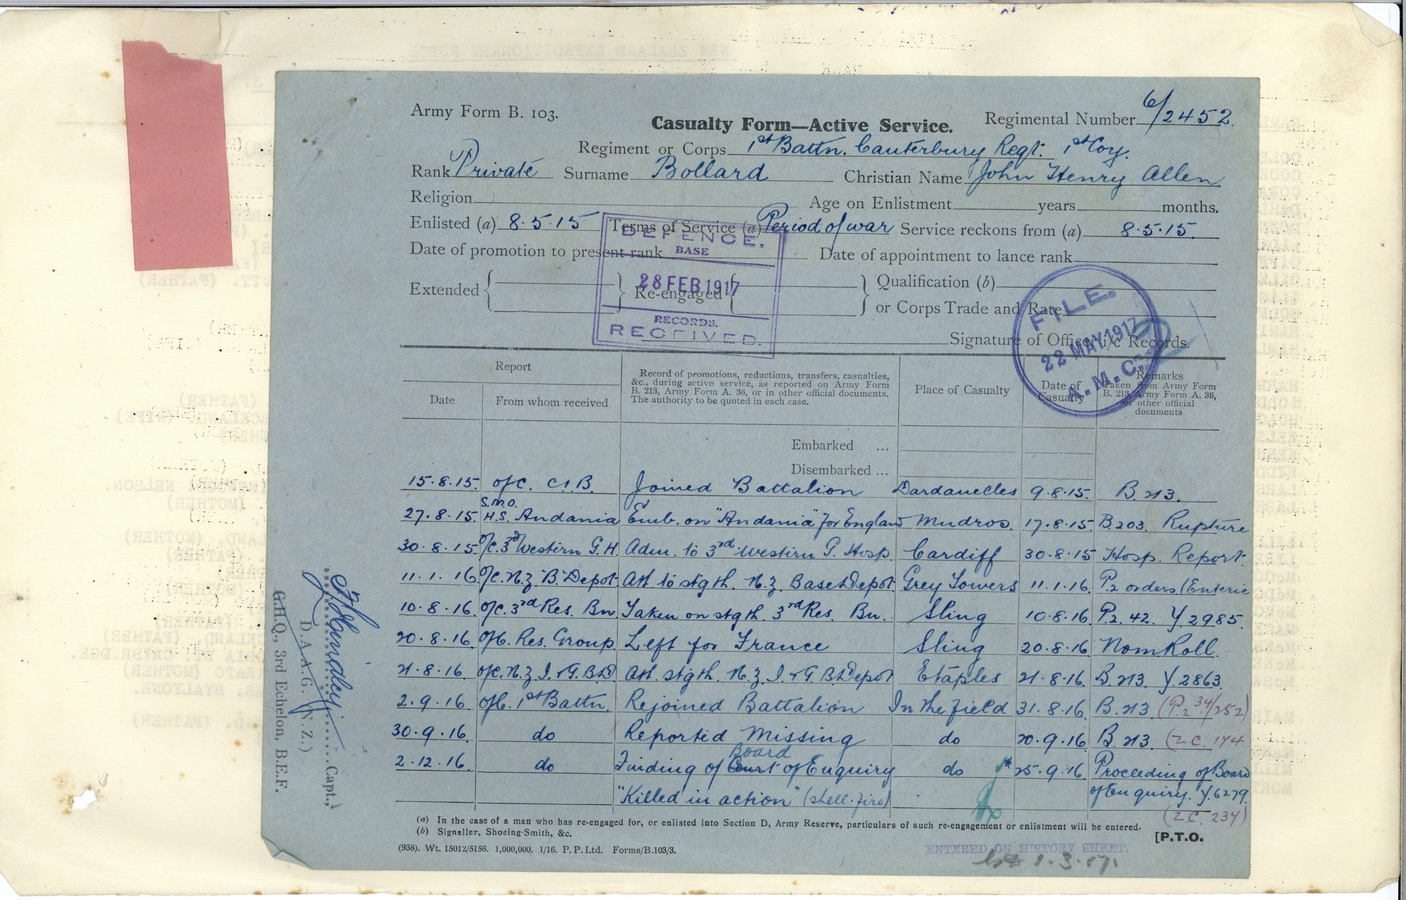 Army Form B. 103.
Casualty Form—Active Service.
Regimental Number 6/2452
Regiment or Corps 1st Battn. Canterbury Regt. 1st Coy.
Rank Private Surname Bollard Christian Name John Henry Allen
Religion Age on Enlistment years months.
Enlisted (a) 8.5.15 Terms of Service (a) Period of war Service reckons from (a) 8.5.15.
Date of promotion to present rank Date of appointment to lance rank
Extended { } Re-engaged { } Qualification (b)
or Corps Trade and Rate
Signature of Officer i/c Records.
DEFENCE.
BASE
28 FEB 1917
RECORDS.
RECEIVED.
FILE.
22 MAY 1917
A.M.C.
Report
Date From whom received
Record of promotions, reductions, transfers, casualties,
&c., during active service, as reported on Army Form
B. 213, Army Form A. 36, or in other official documents.
The authority to be quoted in each case.
Place of Casualty
Date of Casualty
Remarks
taken from Army Form
B. 213, Army Form A. 36,
or other official
documents
Embarked ...
Disembarked ...
15.8.15. o/c. C.I.B. Joined Battalion Dardanelles 9.8.15. B.213.
27.8.15. S.M.O. H.S. Andania Emb. on "Andania" for England Mudros. 17.8.15. B.203. Rupture
30.8.15. o/c. 3rd Western G.H. Adm. to 3rd Western G. Hosp. Cardiff 30.8.15 Hosp. Report.
11.1.16. o/c. N.Z. "B" Depot. Att. to stgth. N.Z. Base Depot Grey Towers 11.1.16. P2 orders (Enteric
10.8.16. o/c. 3rd Res. Bn. Taken on stgth. 3rd Res. Bn. Sling 10.8.16. P2. 42. Y2985.
20.8.16. o/c. Res. Group. Left for France Sling 20.8.16. Nom Roll.
21.8.16. o/c. N.Z. I. & G.B.D Att. stgth. N.Z. I. & G.B.Depot Etaples 21.8.16. B.213 Y2863.
2.9.16. o/c. 1st Battn. Rejoined Battalion In the field 31.8.16. B.213 (P.2 34/252)
30.9.16. do Reported Missing do 20.9.16 B.213 (Z.C. 174
2.12.16. do Finding of Board of Enquiry do 25.9.16 Proceeding of Board
"Killed in action" (shell-fire) of Enquiry. Y.6279.
(Z.C. 234)
(a) In the case of a man who has re-engaged for, or enlisted into Section D, Army Reserve, particulars of such re-engagement or enlistment will be entered.
(b) Signaller, Shoeing-Smith, &c.
[P.T.O.
(938). Wt. 15012/5156. 1,000,000. 1/16. P. P. Ltd. Forms/B.103/3.
ENTERED ON HISTORY SHEET.
1.3.17.
Capt.,
D.A.A.G. (N.Z.)
G.H.Q., 3rd Echelon, B.E.F.